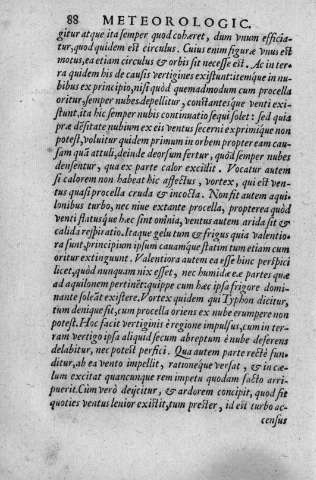 88 METEOROLOGIC.
gitur atque ita semper quod cohæret, dum vnum efficia-
tur, quod quidem est circulus. Cuius enim figuræ vnus est
motus, ea etiam circulus & orbis sit necesse est. Ac in ter-
ra quidem his de causis vertigines existunt: itemque in nu-
bibus ex principio, nisi quòd quemadmodum cum procella
oritur, semper nubes depellitur, constantesque venti exi-
stunt, ita hic semper nubis continuatio sequi solet: sed quia
præ dẽsitate nubium ex eis ventus secerni exprimique non
potest, voluitur quidem primum in orbem propter eam cau-
sam quã attuli, deinde deorsum fertur, quòd semper nubes
densentur, qua ex parte calor excidit. Vocatur autem
si calorem non habeat hic affectus, vortex, qui est ven-
tus quasi procella cruda & incocta. Non fit autem aqui-
lonibus turbo, nec niue extante procella, propterea quòd
venti flatusque hæc sint omnia, ventus autem arida sit &
calida respiratio. Itaque gelu tum & frigus quia valentio-
ra sunt, principium ipsum cauamque statim tum etiam cum
oritur extinguunt. Valentiora autem ea esse hinc perspici
licet, quòd nunquam nix esset, nec humidæ eæ partes quæ
ad aquilonem pertinẽt: quippe cum hæc ipsa frigore domi-
nante soleãt existere. Vortex quidem qui Typhon dicitur,
tum denique fit, cum procella oriens ex nube erumpere non
potest. Hoc facit vertiginis è regione impulsus, cum in ter-
ram vertigo ipsa aliquid secum abreptum è nube deferens
delabitur, nec potest perfici. Qua autem parte rectè fun-
ditur, ab ea vento impellit, rationeque versat, & in cæ-
lum excitat quancunque rem impetu quodam facto arri-
puerit. Cùm verò deijcitur, & ardorem concipit, quod fit
quoties ventus leuior existit, tum prester, id est turbo ac-
census